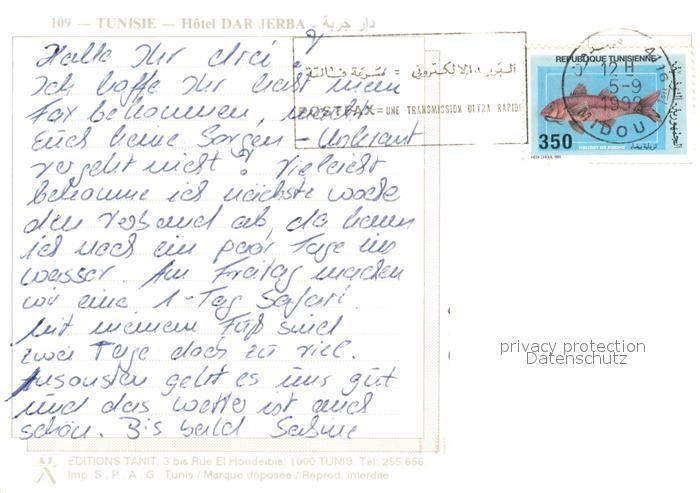 109 — TUNISIE — Hôtel DAR JERBA - دار جربة
Hallo Ihr drei !
Ich hoffe Ihr habt mein
Fax bekommen, macht
Euch keine Sorgen - Unkraut
vergeht nicht ! Vielleicht
bekomme ich nächste Woche
den Verband ab, da kann
ich noch ein paar Tage ins
Wasser. Am Freitag machen
wir eine 1-Tag Safari.
Mit meinem Fuß sind
zwei Tage doch zu viel.
Ansonsten geht es uns gut
und das Wetter ist auch
schön. Bis bald Sabine
البريد الالكتروني = سرعة فائقة
POSTFAX = UNE TRANSMISSION ULTRA RAPIDE
REPUBLIQUE TUNISIENNE
350
ROUGET DE ROCHE
12 H
5-9
MIDOUN
4116
privacy protection
Datenschutz
EDITIONS TANIT, 3 bis Rue El Houdeibia, 1000 TUNIS. Tél: 255.856.
Imp. S.P.A.G. Tunis / Marque déposée / Reprod. interdite